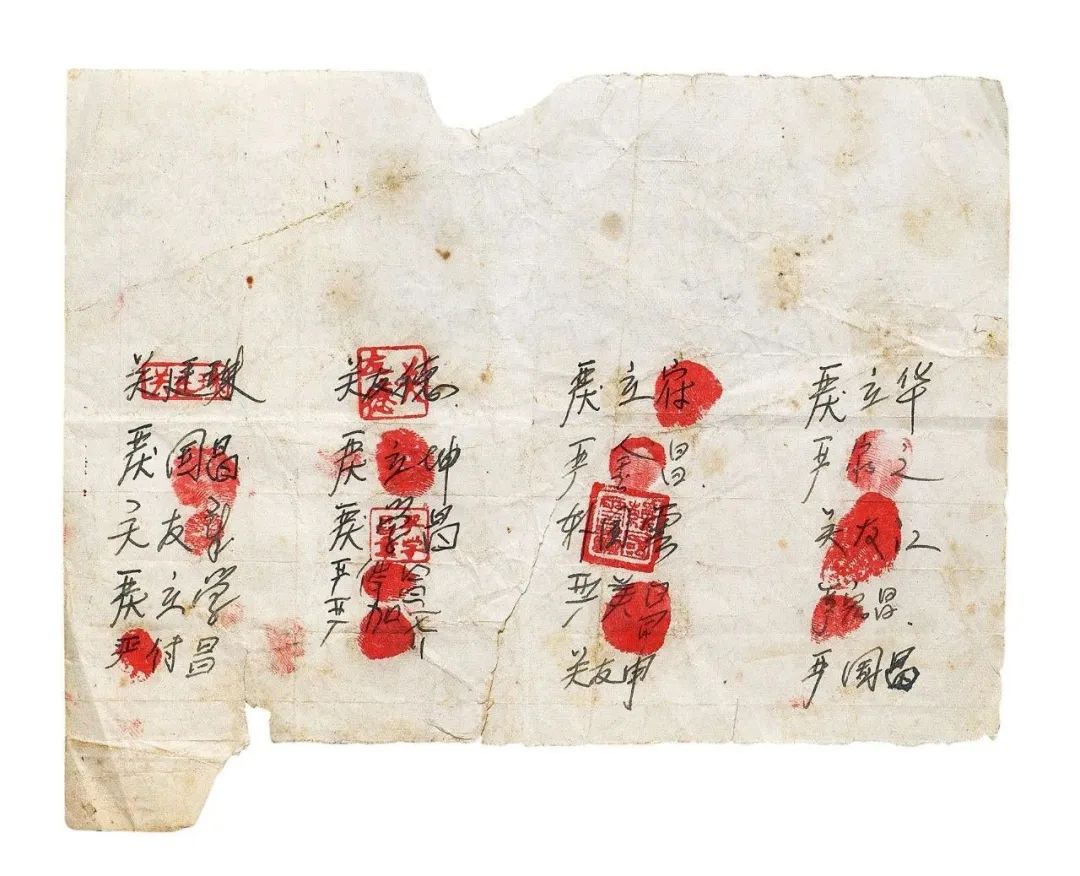 关廷珠 关友德 严立符 严立华
严国昌 严立坤 严金昌 严家芝
关友章 严学昌 韩国云 关友江
严立学 严俊昌 严美昌 严宏昌
严付昌 严家其 关友申 严国品